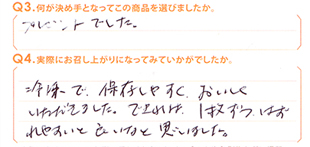 Q3.何が決め手となってこの商品を選びましたか。
プレゼントでした。
Q4.実際にお召し上がりになってみていかがでしたか。
冷凍で、保存しやすく、おいしく
いただきました。できれば、1枚ずつ、はが
れやすいと良いなと思いました。